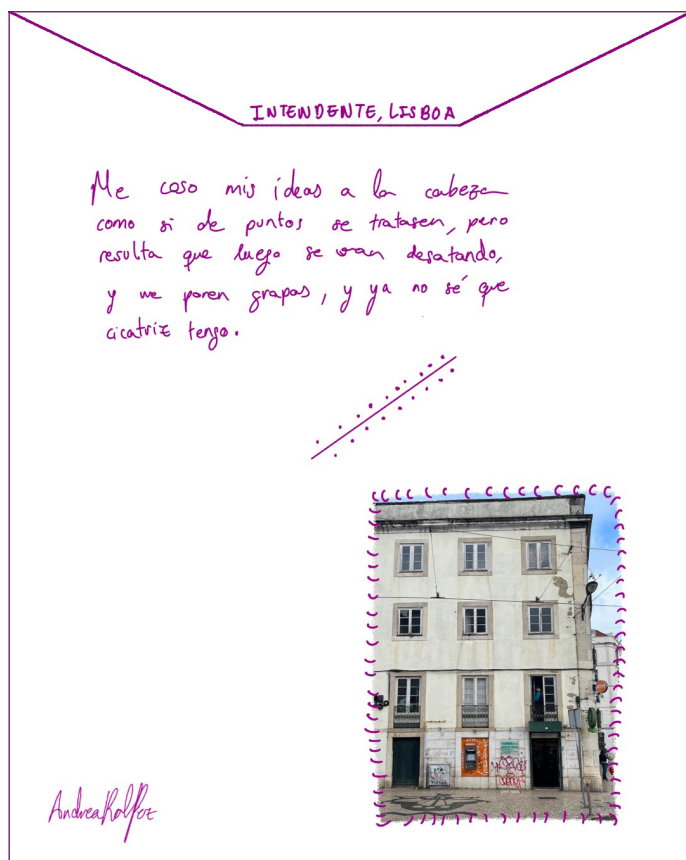 INTENDENTE, LISBOA
Me coso mis ideas a la cabeza
como si de puntos se tratasen, pero
resulta que luego se van desatando,
y me ponen grapas, y ya no sé que
cicatriz tengo.